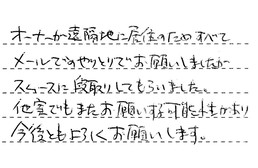 オーナーが遠隔地に居住のためすべて
メールでのやりとりでお願いしましたが
スムースに段取りしてもらいました。
他室でもまたお願いする可能性があり
今後ともよろしくお願いします。